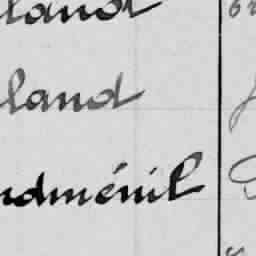 land
land
ndménil